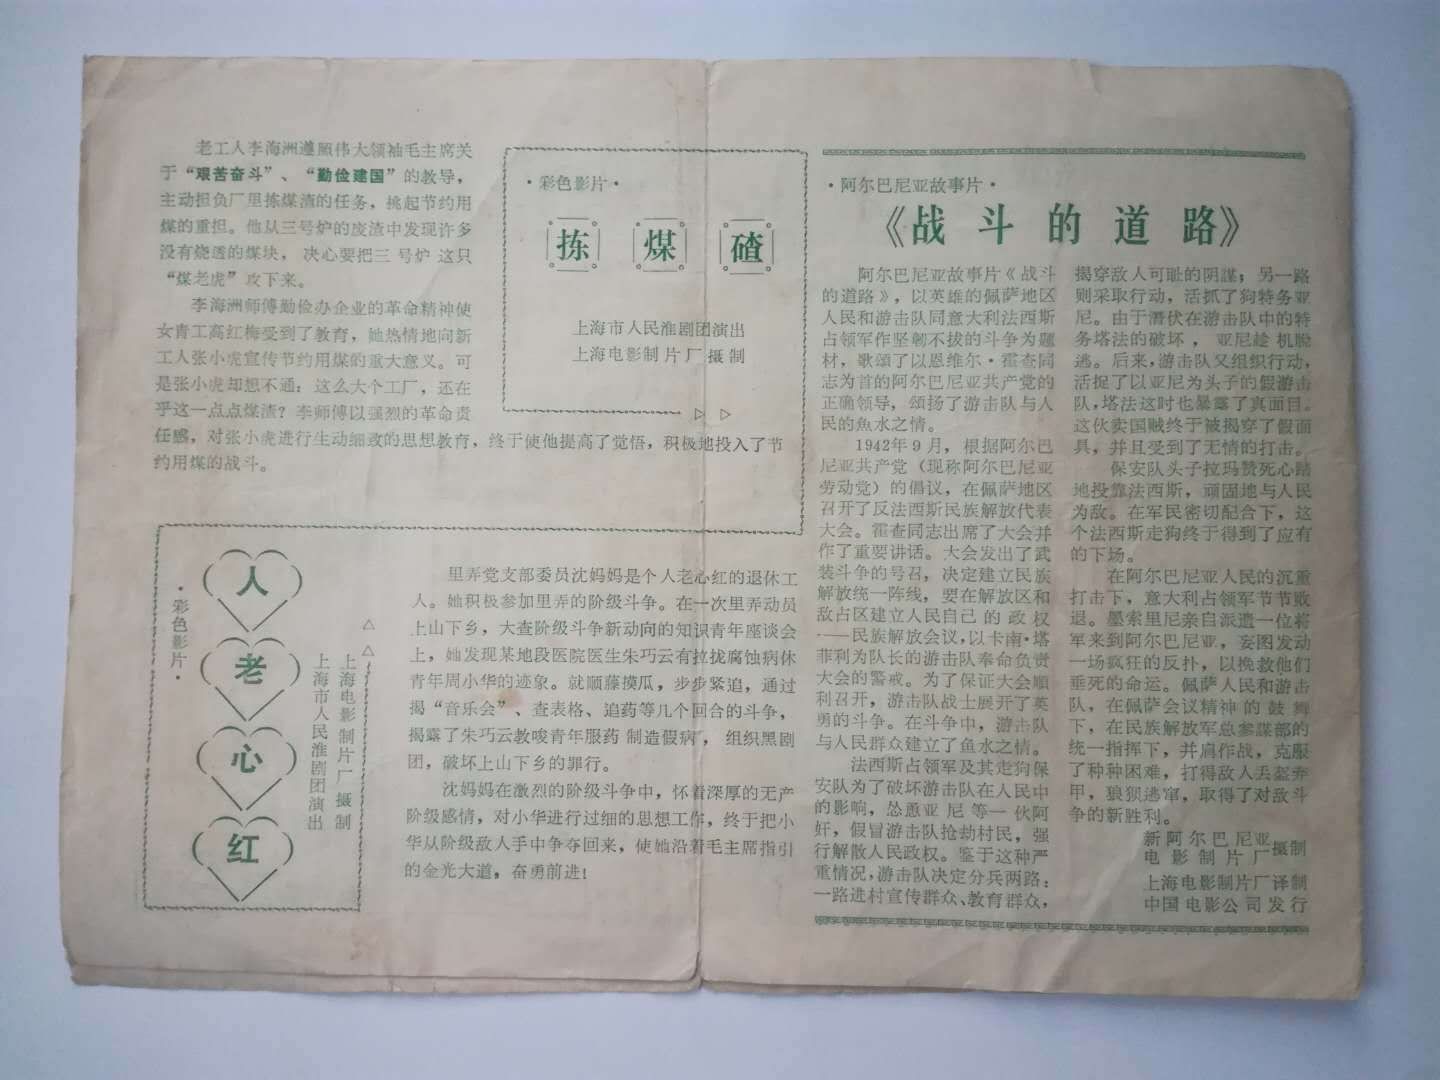 老工人李海洲遵照伟大领袖毛主席关
于“艰苦奋斗”、“勤俭建国”的教导，
主动担负厂里拣煤渣的任务，挑起节约用
煤的重担。他从三号炉的废渣中发现许多
没有烧透的煤块，决心要把三号炉这只
“煤老虎”攻下来。
李海洲师傅勤俭办企业的革命精神使
女青工高红梅受到了教育，她热情地向新
工人张小虎宣传节约用煤的重大意义。可
是张小虎却想不通：这么大个工厂，还在
乎这一点点煤渣？李师傅以强烈的革命责
任感，对张小虎进行生动细致的思想教育，终于使他提高了觉悟，积极地投入了节
约用煤的战斗。
·彩色影片·
拣煤碴
上海市人民淮剧团演出
上海电影制片厂摄制
·彩色影片·
人老心红
上海电影制片厂摄制
上海市人民淮剧团演出
里弄党支部委员沈妈妈是个人老心红的退休工
人。她积极参加里弄的阶级斗争。在一次里弄动员
上山下乡，大查阶级斗争新动向的知识青年座谈会
上，她发现某地段医院医生朱巧云有拉拢腐蚀病休
青年周小华的迹象。就顺藤摸瓜，步步紧追，通过
揭“音乐会”、查表格、追药等几个回合的斗争，
揭露了朱巧云教唆青年服药制造假病，组织黑剧
团，破坏上山下乡的罪行。
沈妈妈在激烈的阶级斗争中，怀着深厚的无产
阶级感情，对小华进行过细的思想工作，终于把小
华从阶级敌人手中争夺回来，使她沿着毛主席指引
的金光大道，奋勇前进！
·阿尔巴尼亚故事片·
《战斗的道路》
阿尔巴尼亚故事片《战斗
的道路》，以英雄的佩萨地区
人民和游击队同意大利法西斯
占领军作坚韧不拔的斗争为题
材，歌颂了以恩维尔·霍查同
志为首的阿尔巴尼亚共产党的
正确领导，颂扬了游击队与人
民的魚水之情。
1942年9月，根据阿尔巴
尼亚共产党（现称阿尔巴尼亚
劳动党）的倡议，在佩萨地区
召开了反法西斯民族解放代表
大会。霍查同志出席了大会并
作了重要讲话。大会发出了武
装斗争的号召，决定建立民族
解放统一阵线，要在解放区和
敌占区建立人民自己的政权
——民族解放会议，以卡南·塔
菲利为队长的游击队奉命负责
大会的警戒。为了保证大会顺
利召开，游击队战士展开了英
勇的斗争。在斗争中，游击队
与人民群众建立了鱼水之情。
法西斯占领军及其走狗保
安队为了破坏游击队在人民中
的影响，怂恿亚尼等一伙阿
奸，假冒游击队抢劫村民，强
行解散人民政权。鉴于这种严
重情况，游击队决定分兵两路：
一路进村宣传群众、教育群众，
揭穿敌人可耻的阴謀；另一路
则采取行动，活抓了狗特务亚
尼。由于潛伏在游击队中的特
务塔法的破坏，亚尼趁机脱
逃。后来，游击队又组织行动，
活捉了以亚尼为头子的假游击
队，塔法这时也暴露了真面目。
这伙卖国贼终于被揭穿了假面
具，并且受到了无情的打击。
保安队头子拉玛赞死心踏
地投靠法西斯，顽固地与人民
为敌。在军民密切配合下，这
个法西斯走狗终于得到了应有
的下场。
在阿尔巴尼亚人民的沉重
打击下，意大利占领军节节败
退。墨索里尼亲自派遣一位将
军来到阿尔巴尼亚，妄图发动
一场疯狂的反扑，以挽救他们
垂死的命运。佩萨人民和游击
队，在佩萨会议精神的鼓舞
下，在民族解放军总参謀部的
统一指挥下，并肩作战，克服
了种种困难，打得敌人丢盔弃
甲，狼狈逃窜，取得了对敌斗
争的新胜利。
新阿尔巴尼亚
电影制片厂摄制
上海电影制片厂译制
中国电影公司发行